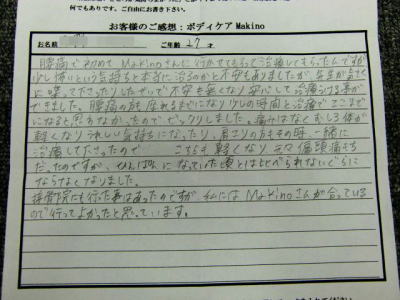 何でもあります。ご自由にお書き下さい。
お客様のご感想：ボディケア Makino
お名前 ご年齢 27 才
腰痛で初めて Makinoさんに行かせてもらって治療してもらったんですが
少し怖いという気持ちと本当に治るのかと不安もありましたが、先生が気さく
に喋って下さったりしたせいで不安も無くなり安心して治療うける事が
できました。腰痛の方も座れるまでになり少しの時間と治療でここまで
になると思わなかったのでビックリしました。痛みはなくむしろ体が
軽くなりうれしい気持ちになったり、肩こりの方もその時、一緒に
治療して下さったので こちらも軽くなり、元々偏頭痛もち
だったのですが、ひんぱんになっていた頃とは比べられないぐらに
ならなくなりました。
接骨院にも行った事はあったのですが、私には Makinoさんが合っている
ので行ってよかったと思っています。